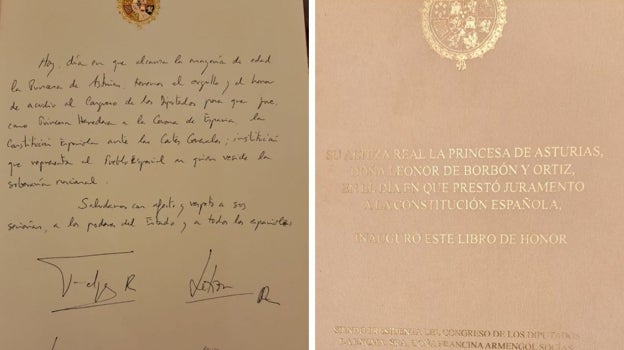 Hoy, día en que alcanza la mayoría de edad
la Princesa de Asturias, tenemos el orgullo y el honor
de acudir al Congreso de los Diputados para que jure,
como Princesa Heredera a la Corona de España la
Constitución Española ante las Cortes Generales; institución
que representa al Pueblo Español en quien reside la
soberanía nacional.
Saludamos con afecto y respeto a sus
señorías, a los poderes del Estado y a todos los españoles
Felipe R
Letizia R
SU ALTEZA REAL LA PRINCESA DE ASTURIAS,
DOÑA LEONOR DE BORBÓN Y ORTIZ,
EN EL DÍA EN QUE PRESTÓ JURAMENTO
A LA CONSTITUCIÓN ESPAÑOLA,
INAUGURÓ ESTE LIBRO DE HONOR
SIENDO PRESIDENTA DEL CONGRESO DE LOS DIPUTADOS
LA EXCMA. SRA. DOÑA FRANCINA ARMENGOL SOCIAS